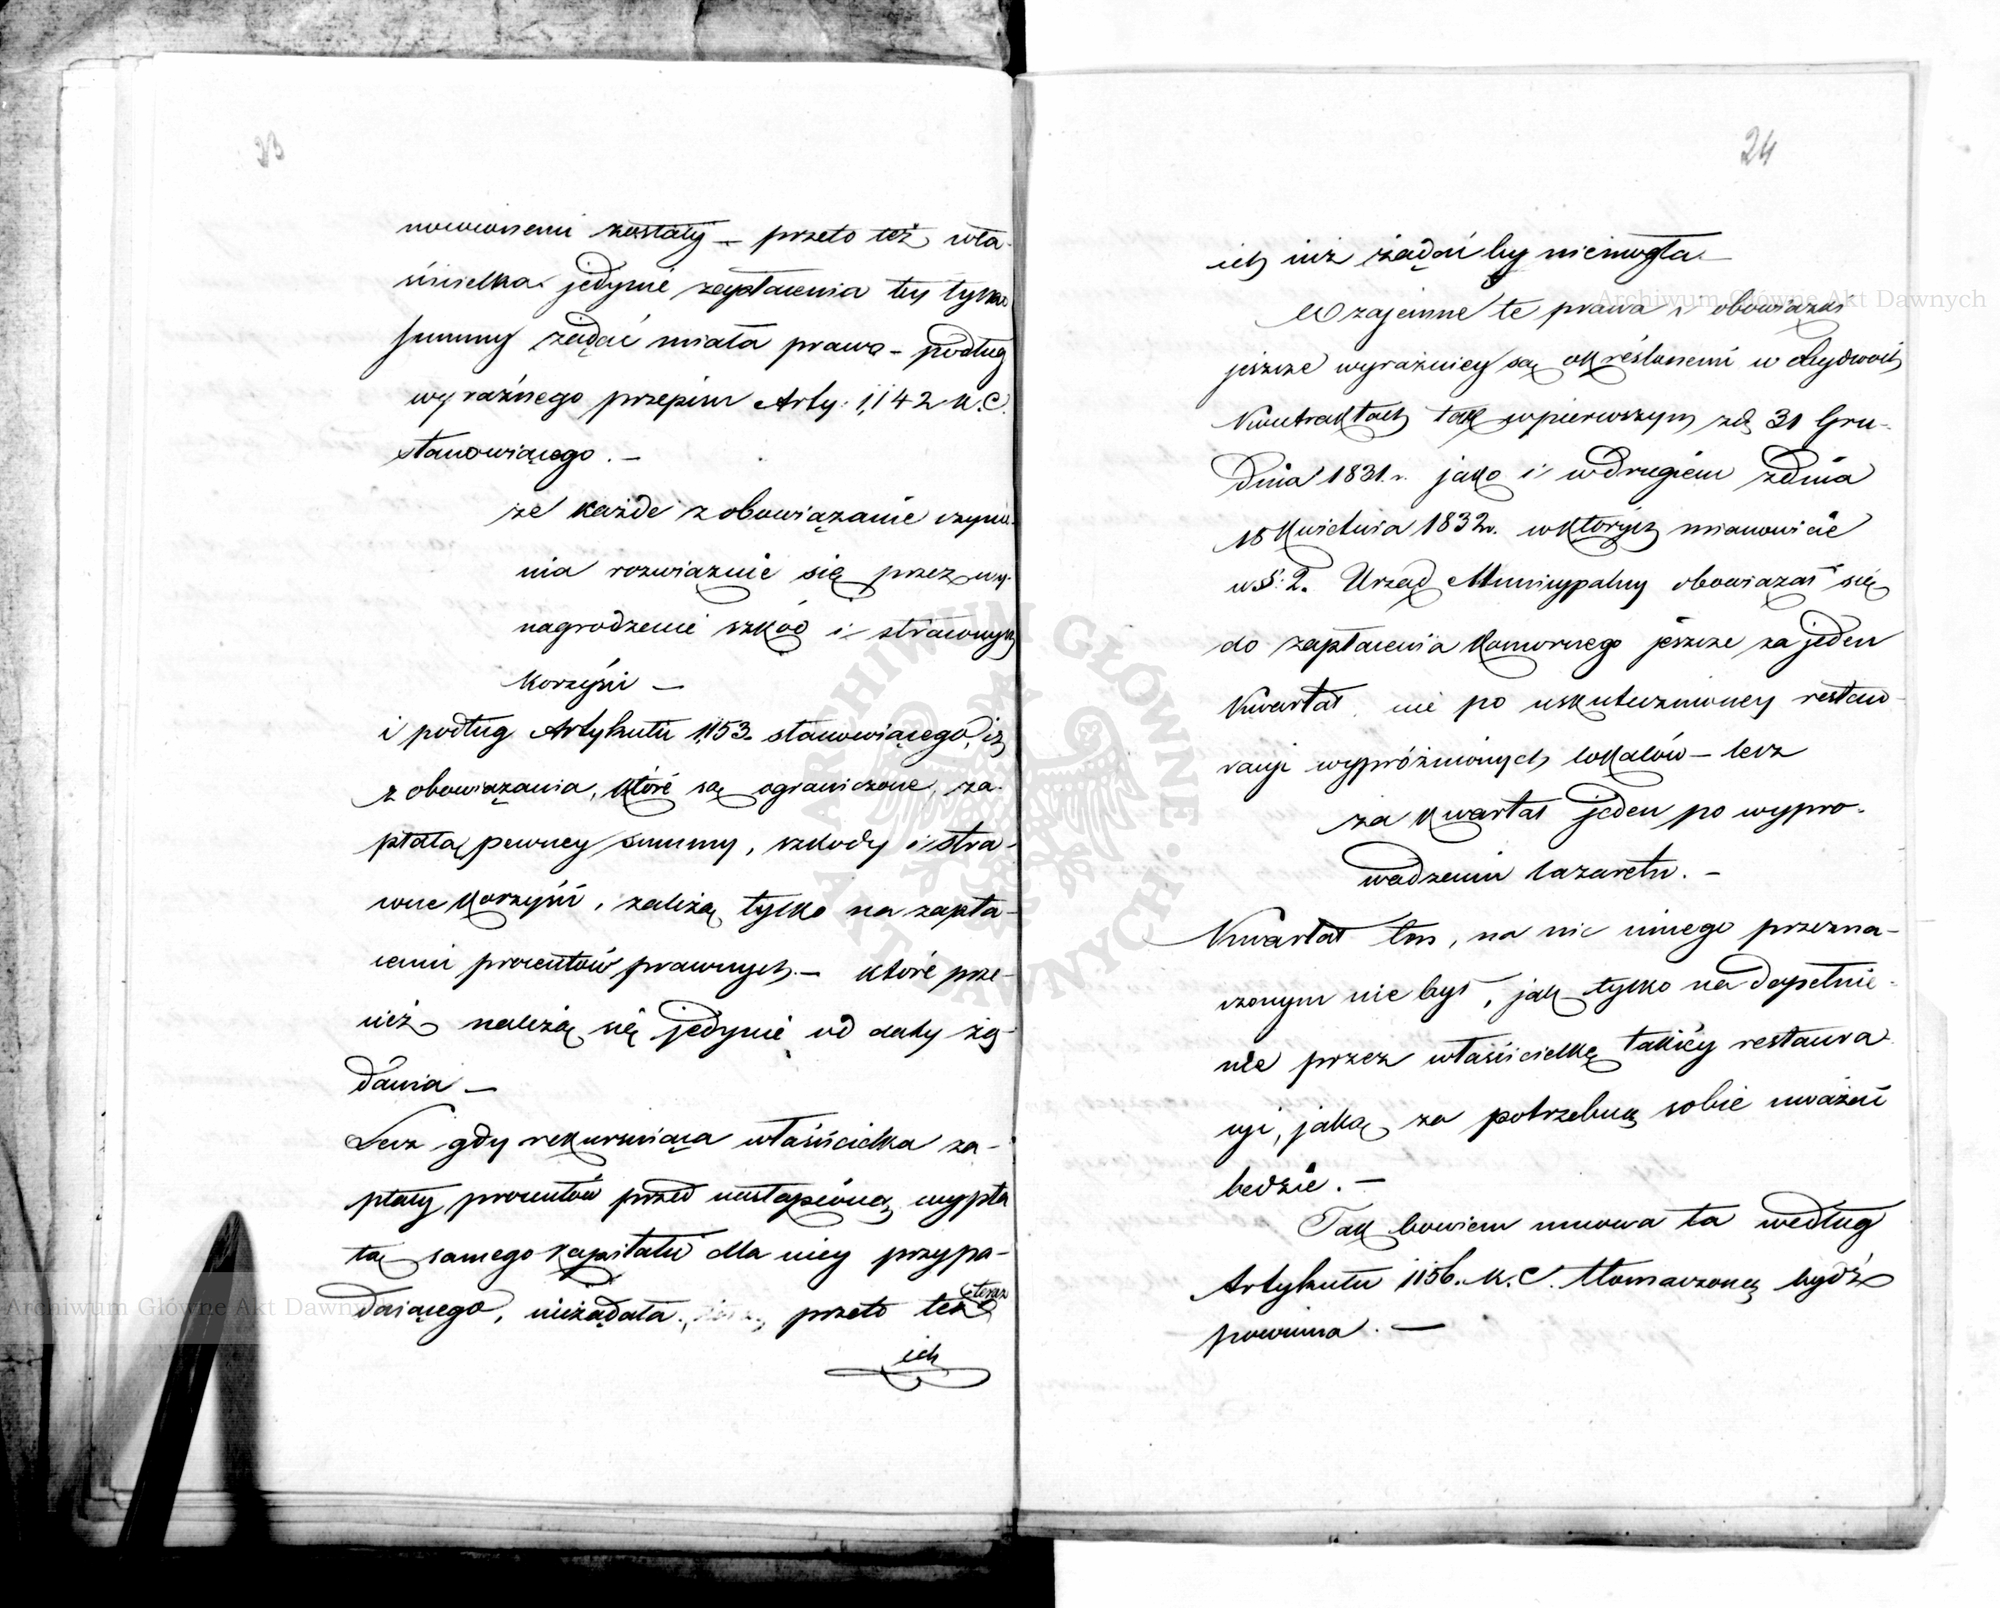 23
nowionemi zostały – przeto też wła-
ścicielka jedynie zapłacenia tey tylko
summy żądać miała prawo – podług
wyraźnego przepisu Arty: 1,142 K. C.
stanowiącego. –
że każde zobowiązanie czynie-
nia rozwiązuie się przez wy-
nagrodzenie szkód i straconych
korzyści –
i podług Artykułu 1,153. stanowiącego, iż
zobowiązania, które są ograniczone, za-
płatą pewney summy, szkody i stra-
cone korzyści, zależą tylko na zapła-
ceniu procentów prawnych. – które prze-
cież należą się jedynie od daty żą-
dania –
Lecz gdy rekursuiąca właścicielka za-
płaty procentów przed nastąpioną wypła
tą samego kapitału dla niey przypa-
daiącego, nieżądała, przeto też teraz
ich
24
ich iuż żądać by niemogła. –
Wzajemne te prawa i obowiązki
jeszcze wyraźniey są określonemi w obydwóch
Kontraktach tak w pierwszym zd. 31 Gru-
dnia 1831 r. jako i w drugiem zdnia
18 Kwietnia 1832 r. w których mianowicie
w §: 2. Urząd Municypalny obowiązał się
do zapłacenia Komornego jeszcze za jeden
Kwartał, nie po uskutecznioney restau-
racyi wypróżnionych lokalów – lecz
za kwartał jeden po wypro-
wadzeniu lazaretu. –
Kwartał ten, na nic innego przezna-
czonym nie był, jak tylko na dopełnie-
nie przez właścicielkę takiéy restaura-
cyi, jaką za potrzebną sobie uważać
bedzie. –
Tak bowiem umowa ta według
Artykułu 1156. K. C. tłomaczoną bydź
powinna. –
Archiwum Główne Akt Dawnych
Archiwum Główne Akt Dawnych
ARCHIWUM GŁÓWNE AKT DAWNYCH